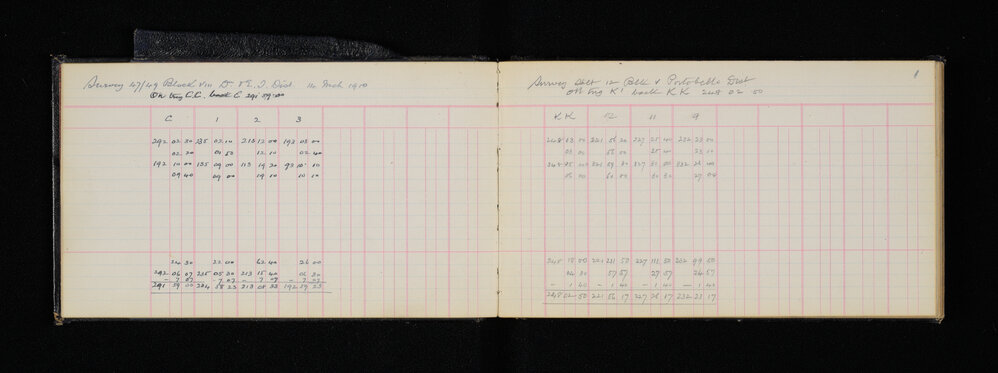 Survey 47/49 Block VIII D & E. T. Dist 14 Mch 1910
On trig C.C. back C 291 59.00
C 1 2 3
292 02 30 235 02 10 213 12 00 192 05 00
02 20 01 50 12 10 02 40
192 10 00 135 09 00 113 19 20 93 10 10
09 40 09 00 19 10 10 10
24 30 22 00 62 40 26 00
292 06 07 235 05 30 213 15 40 06 30
- 7 07 - 7 07 - 7 07 - 7 07
291 59 00 234 58 23 213 08 33 192 59 23
1
Survey Allt 12 Blk V Portobello Dist
On trig K' back KK 248 02 50
KK 12 11 9
248 03 00 221 56 20 227 25 40 232 23 00
03 00 58 00 25 40 23 10
221 59 30 30 00
06 00 60 00 30 30 27 08
248 18 00 221 231 50 227 111 50 232 99 50
04 30 57 57 27 57 24 57
- 1 40 - 1 40 - 1 40 - 1 40
248 02 50 221 56 17 227 26 17 232 23 17